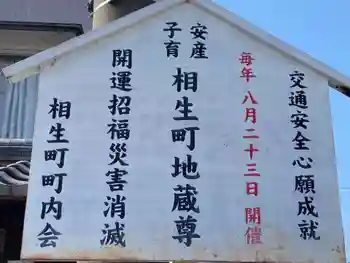 交通安全心願成就
毎年 八月二十三日 開催
安産
子育
相生町地蔵尊
開運招福災害消滅
相生町町内会